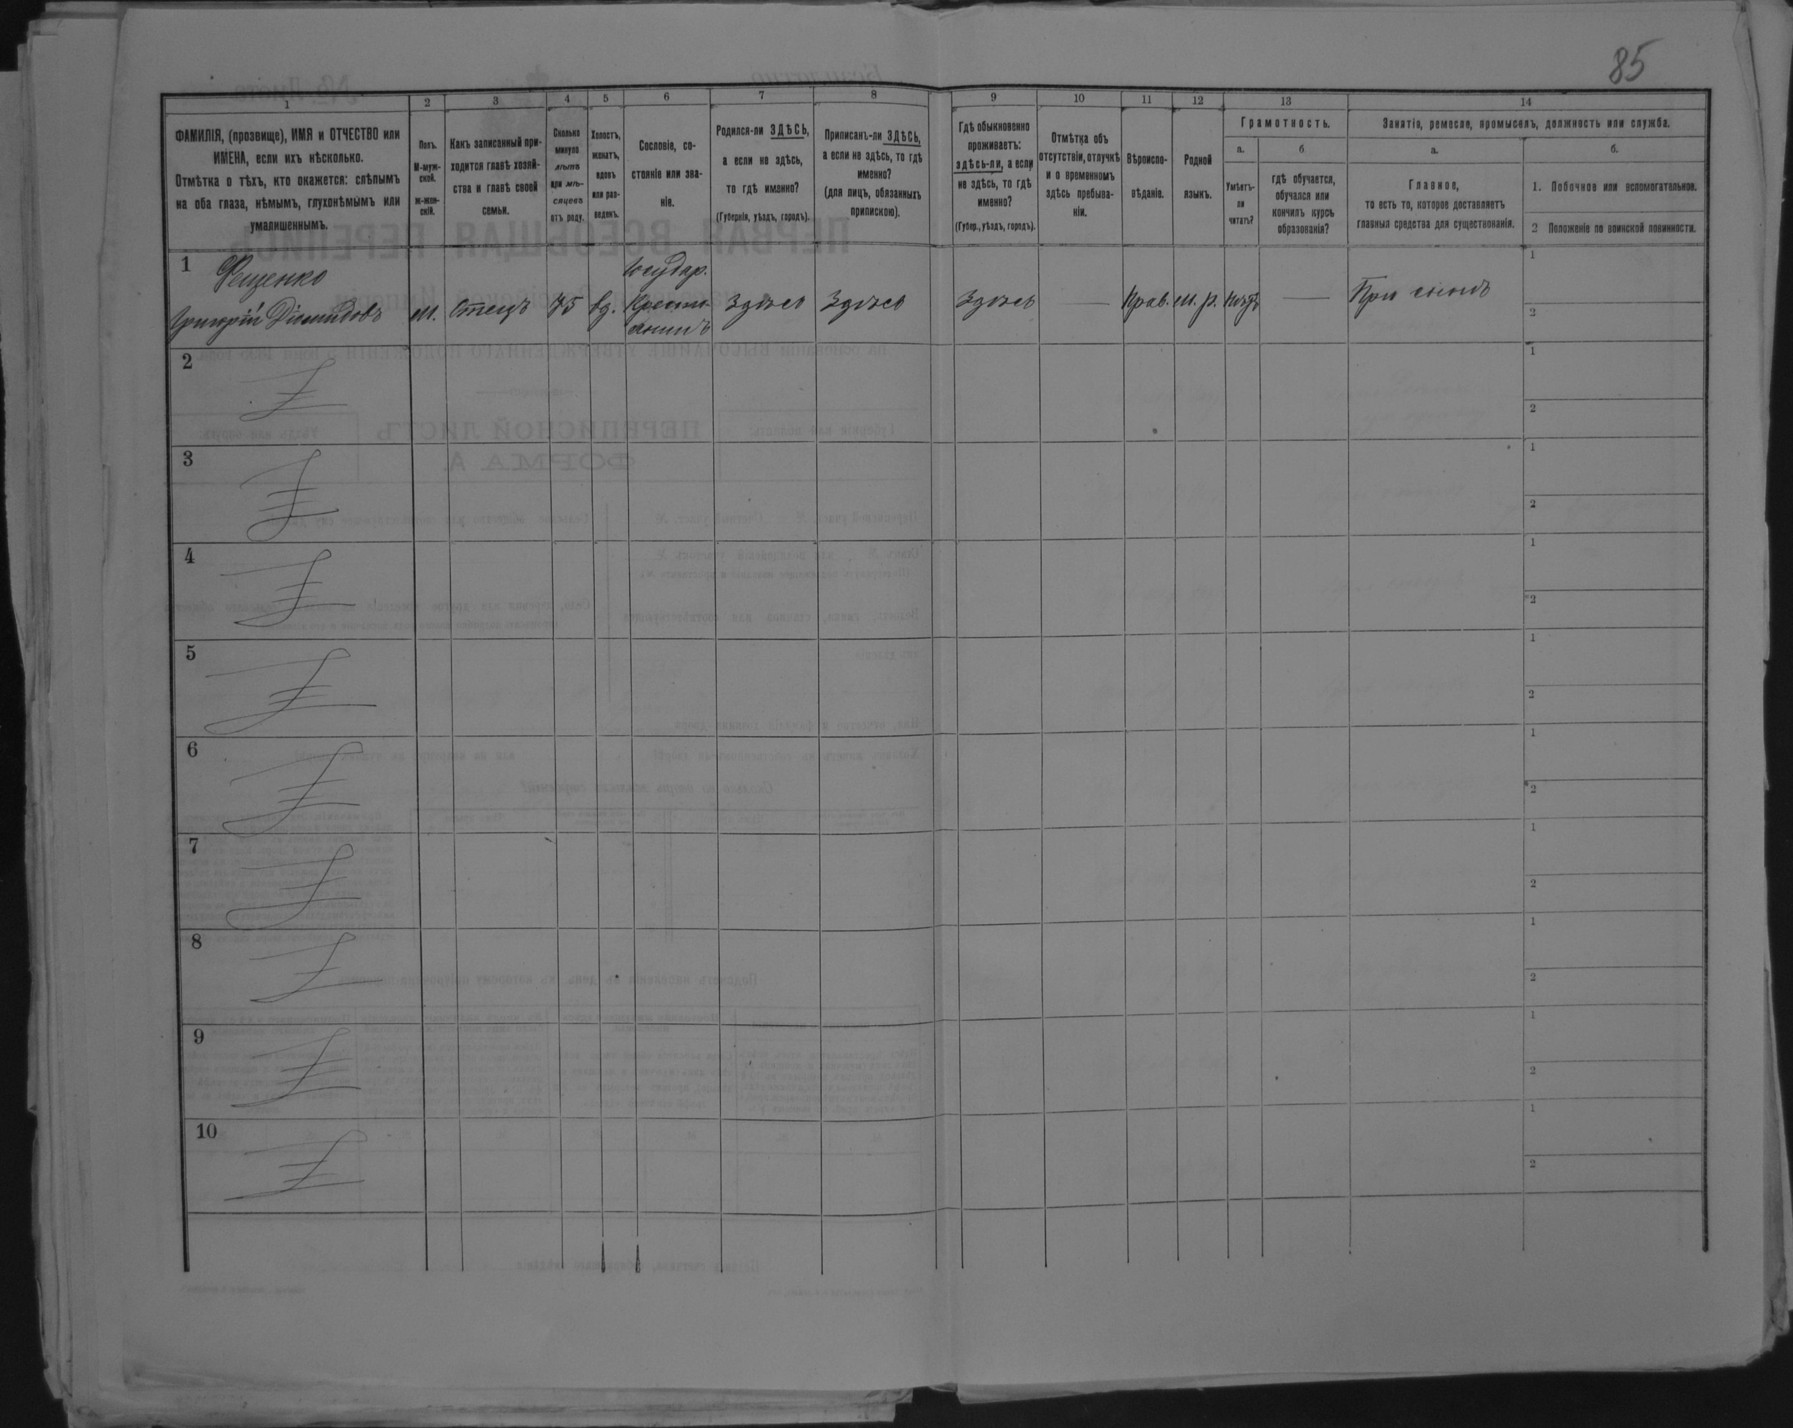 85
1 2 3 4 5 6 7 8 9 10 11 12 13 14
ФАМИЛІЯ, (прозвище), ИМЯ и ОТЧЕСТВО или
ИМЕНА, если ихъ нѣсколько.
Отмѣтка о тѣхъ, кто окажется: слѣпымъ
на оба глаза, нѣмымъ, глухонѣмымъ или
умалишеннымъ.
Полъ.
М-муж-
ской.
ж-жен-
скій.
Какъ записанный при-
ходится главѣ хозяй-
ства и главѣ своей
семьи.
Сколько
минуло
лѣтъ
или мѣ-
сяцевъ
отъ роду.
Холостъ,
женатъ,
вдовъ
или раз-
веденъ.
Сословіе, со-
стояніе или зва-
ніе.
Родился-ли ЗДѢСЬ,
а если не здѣсь,
то гдѣ именно?
(Губернія, уѣздъ, городъ).
Приписанъ-ли ЗДѢСЬ,
а если не здѣсь, то гдѣ
именно?
(для лицъ, обязанныхъ
припискою).
Гдѣ обыкновенно
проживаетъ:
здѣсь-ли, а если
не здѣсь, то гдѣ
именно?
(Губер., уѣздъ, городъ).
Отмѣтка объ
отсутствіи, отлучкѣ
и о временномъ
здѣсь пребыва-
ніи.
Вѣроиспо-
вѣданіе.
Родной
языкъ.
Грамотность.
а.
Умѣетъ-
ли
читать?
б
гдѣ обучается,
обучался или
кончилъ курсъ
образованія?
Занятіе, ремесло, промыселъ, должность или служба.
а.
Главное,
то есть то, которое доставляетъ
главныя средства для существованія.
б.
1. Побочное или вспомогательное.
2 Положеніе по воинской повинности.
1 Фещенко Государ. 1
Григорій Діомидовъ м. Отецъ 75 вд. Крестья- Здѣсь Здѣсь Здѣсь — Прав. м. р. нѣтъ — При сынѣ 2
янинъ
2 1
2
3 1
2
4 1
2
5 1
2
6 1
2
7 1
2
8 1
2
9 1
2
10 1
2